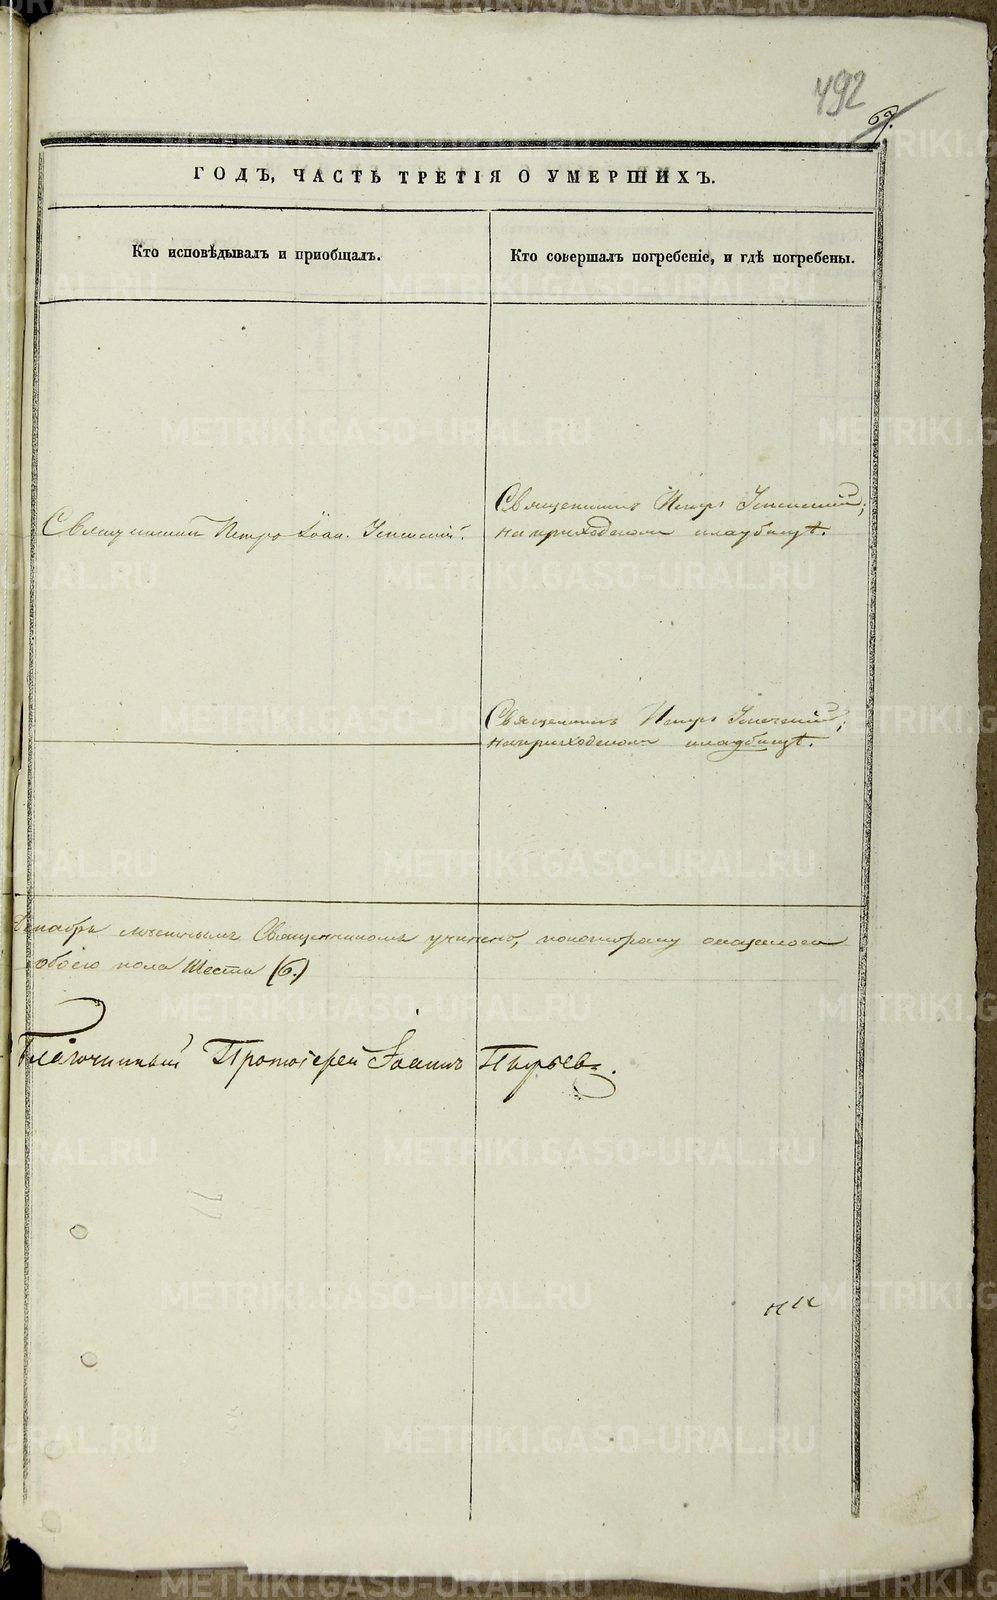 492
67.
ГОДЪ, ЧАСТЬ ТРЕТІЯ О УМЕРШИХЪ.
Кто исповѣдывалъ и пріобщалъ.
Кто совершалъ погребеніе, и гдѣ погребены.
Священникъ Петръ Успенскій;
Священникъ Петръ Іоан. Успенскій.
на приходскомъ кладбищѣ.
Священникъ Петръ Успенскій;
на приходскомъ кладбищѣ.
Декабрь мѣсяцъ Священникомъ учинено, по которому оказалось
обоего пола Шесть (6.)
Благочинный Протоіерей Іоаннъ
METRIKI.GASO-URAL.RU